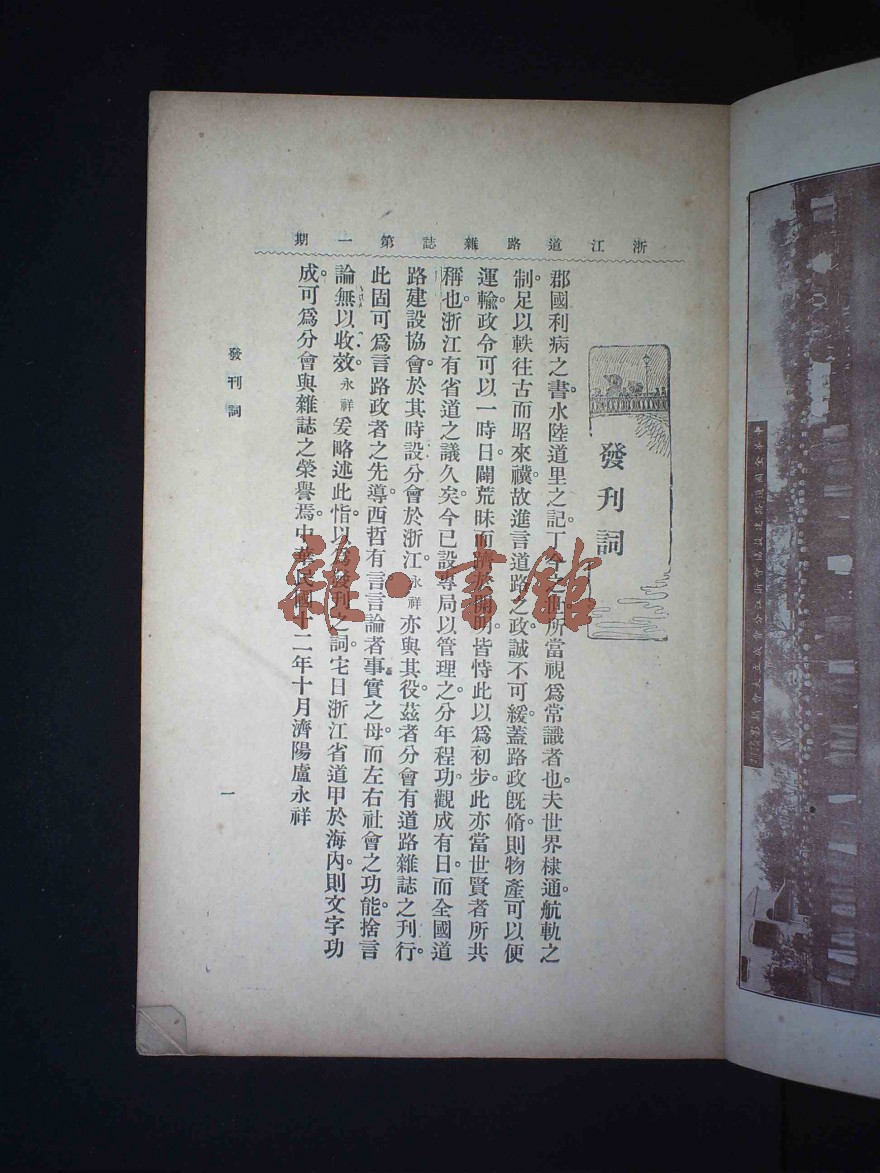 浙江道路雜誌第一期
發刊詞
郡國利病之書。水陸道里之記。丁今之世所當視爲常識者也。夫世界棣通。航軌之
制。足以軼往古而昭來禩。故進言道路之政。誠不可緩。蓋路政旣脩。則物產可以便
運輸。政令可以一時日。闢荒昧而躋於開明。皆恃此以爲初步。此亦當世賢者所共
稱也。浙江有省道之議久矣。今已設專局以管理之。分年程功。觀成有日。而全國道
路建設協會。於其時設分會於浙江。永祥亦與其役。茲者分會有道路雜誌之刊行。
此固可爲言路政者之先導。西哲有言。言論者事實之母。而左右社會之功能。捨言
論無以收效。永祥爰略述此恉。以爲發刊之詞。它日浙江省道甲於海內。則文字功
成。可爲分會與雜誌之榮譽焉。中華民國十二年十月濟陽盧永祥
發刊詞
一
雜·書館